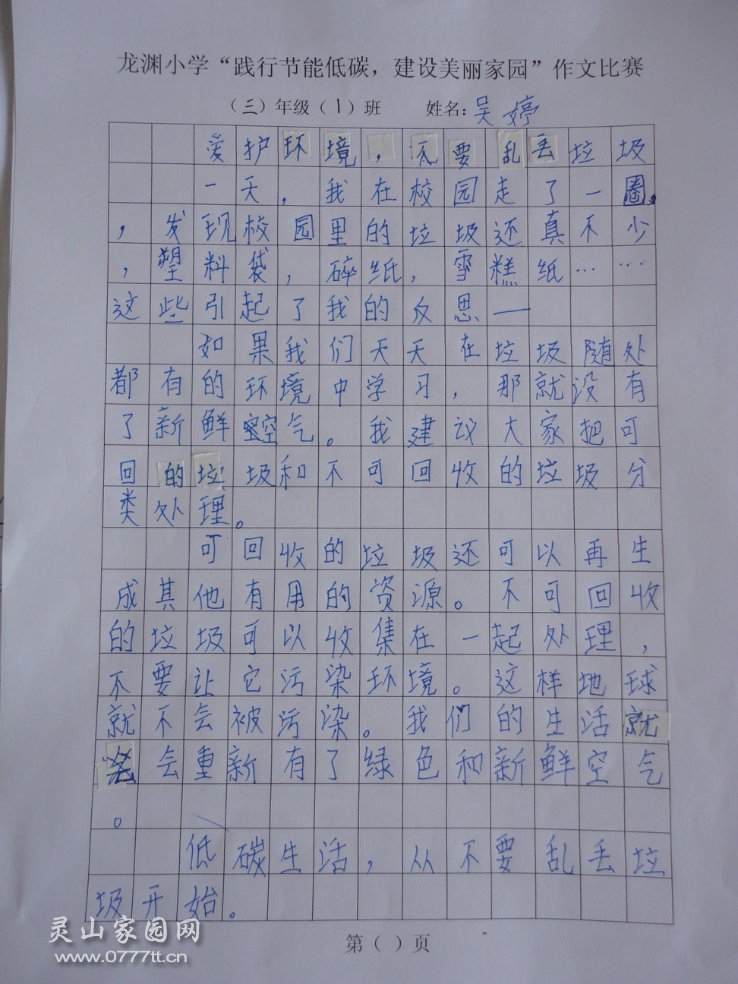 龙渊小学“践行节能低碳，建设美丽家园”作文比赛
（三）年级（1）班 姓名：吴婷
爱护环境，不要乱丢垃圾
一天，我在校园走了一圈
，发现校园里的垃圾还真不少
，塑料袋，碎纸，雪糕纸……
这些引起了我的反思——
如果我们天天在垃圾随处
都有的环境中学习，那就没有
了新鲜空气。我建议大家把可
回的垃圾和不可回收的垃圾分
类处理。
可回收的垃圾还可以再生
成其他有用的资源。不可回收
的垃圾可以收集在一起处理，
不要让它污染环境。这样地球
就不会被污染。我们的生活就
会重新有了绿色和新鲜空气
。
低碳生活，从不要乱丢垃
圾开始。
第（ ）页
灵山家园网
www.0777tt.cn